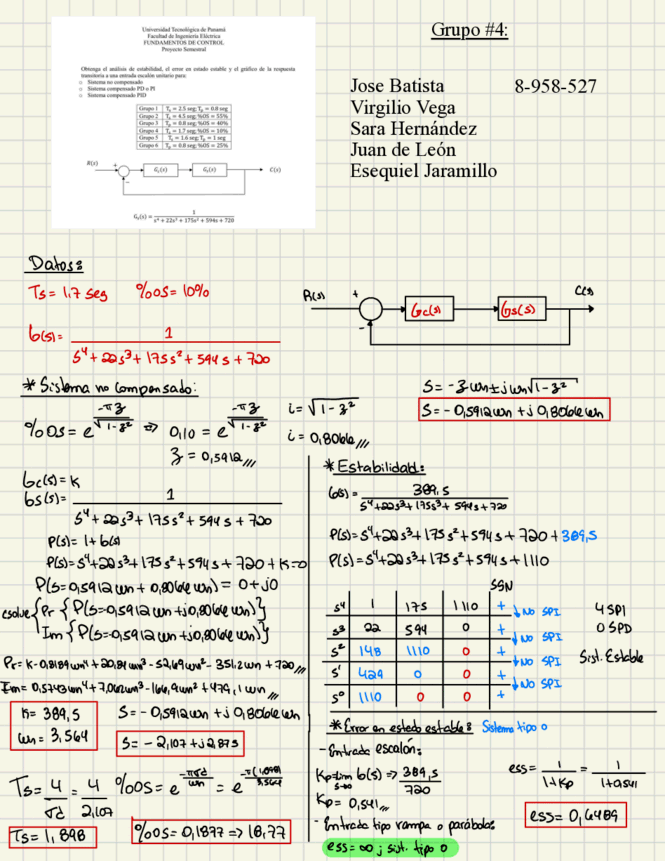 Universidad Tecnológica de Panamá
Facultad de Ingeniería Eléctrica
FUNDAMENTOS DE CONTROL
Proyecto Semestral
Obtenga el análisis de estabilidad, el error en estado estable y el gráfico de la respuesta
transitoria a una entrada escalón unitario para:
o Sistema no compensado
o Sistema compensado PD o PI
o Sistema compensado PID
Grupo 1 Ts = 2.5 seg; Tp = 0.8 seg
Grupo 2 Ts = 4.5 seg; %OS = 55%
Grupo 3 Tp = 0.8 seg; %OS = 40%
Grupo 4 Ts = 1.7 seg; %OS = 10%
Grupo 5 Ts = 1.6 seg; Tp = 1 seg
Grupo 6 Tp = 0.8 seg; %OS = 25%
R(s) + - G_c(s) G_s(s) C(s)
G_s(s) = 1 / (s⁴ + 22s³ + 175s² + 594s + 720)
Grupo #4:
Jose Batista 8-958-527
Virgilio Vega
Sara Hernández
Juan de León
Esequiel Jaramillo
Datos:
Ts = 1,7 seg %OS = 10%
G(s) = 1 / (s⁴ + 22s³ + 175s² + 594s + 720)
R(s) + - Gc(s) Gs(s) C(s)
* Sistema no compensado:
%OS = e^(-πζ/√(1-ζ²)) ⇒ 0,10 = e^(-πζ/√(1-ζ²))
ζ = 0,5912
i = √(1-ζ²)
i = 0,8066
S = -ζωn ± jωn√(1-ζ²)
S = -0,5912ωn + j0,8066ωn
Gc(s) = K
Gs(s) = 1 / (s⁴ + 22s³ + 175s² + 594s + 720)
P(s) = 1 + G(s)
P(s) = s⁴ + 22s³ + 175s² + 594s + 720 + K = 0
P(s = 0,5912ωn + 0,8066ωn) = 0 + j0
csolve { Pr { P(s = -0,5912ωn + j0,8066ωn)}
Im { P(s = -0,5912ωn + j0,8066ωn)}
Pr = K - 0,8189ωn⁴ + 20,84ωn³ - 52,69ωn² - 351,2ωn + 720
Im = 0,5743ωn⁴ + 7,062ωn³ - 166,9ωn² + 479,1ωn
K = 389,5
ωn = 3,564
S = -0,5912ωn + j0,8066ωn
S = -2,107 + j2,875
Ts = 4/σd = 4/2,107
Ts = 1,898
%OS = e^(-πσd/ωn) = e^(-π(1,898)/3,564)
%OS = 0,1877 ⇒ 18,77
* Estabilidad:
G(s) = 389,5 / (s⁴ + 22s³ + 175s² + 594s + 720)
P(s) = s⁴ + 22s³ + 175s² + 594s + 720 + 389,5
P(s) = s⁴ + 22s³ + 175s² + 594s + 1110
SGN
s⁴ 1 175 1110 + ↓ NO SPI
s³ 22 594 0 + ↓ NO SPI
s² 148 1110 0 + ↓ NO SPI
s¹ 429 0 0 + ↓ NO SPI
s⁰ 1110 0 0 +
4 SPI
0 SPD
Sist. Estable
* Error en estado estable: Sistema tipo 0
- Entrada escalón:
Kp = lim s→0 G(s) ⇒ 389,5/720
Kp = 0,541
ess = 1/(1+Kp) = 1/(1+0,541)
ess = 0,6489
- Entrada tipo rampa o parábola:
ess = ∞ ; sist. tipo 0